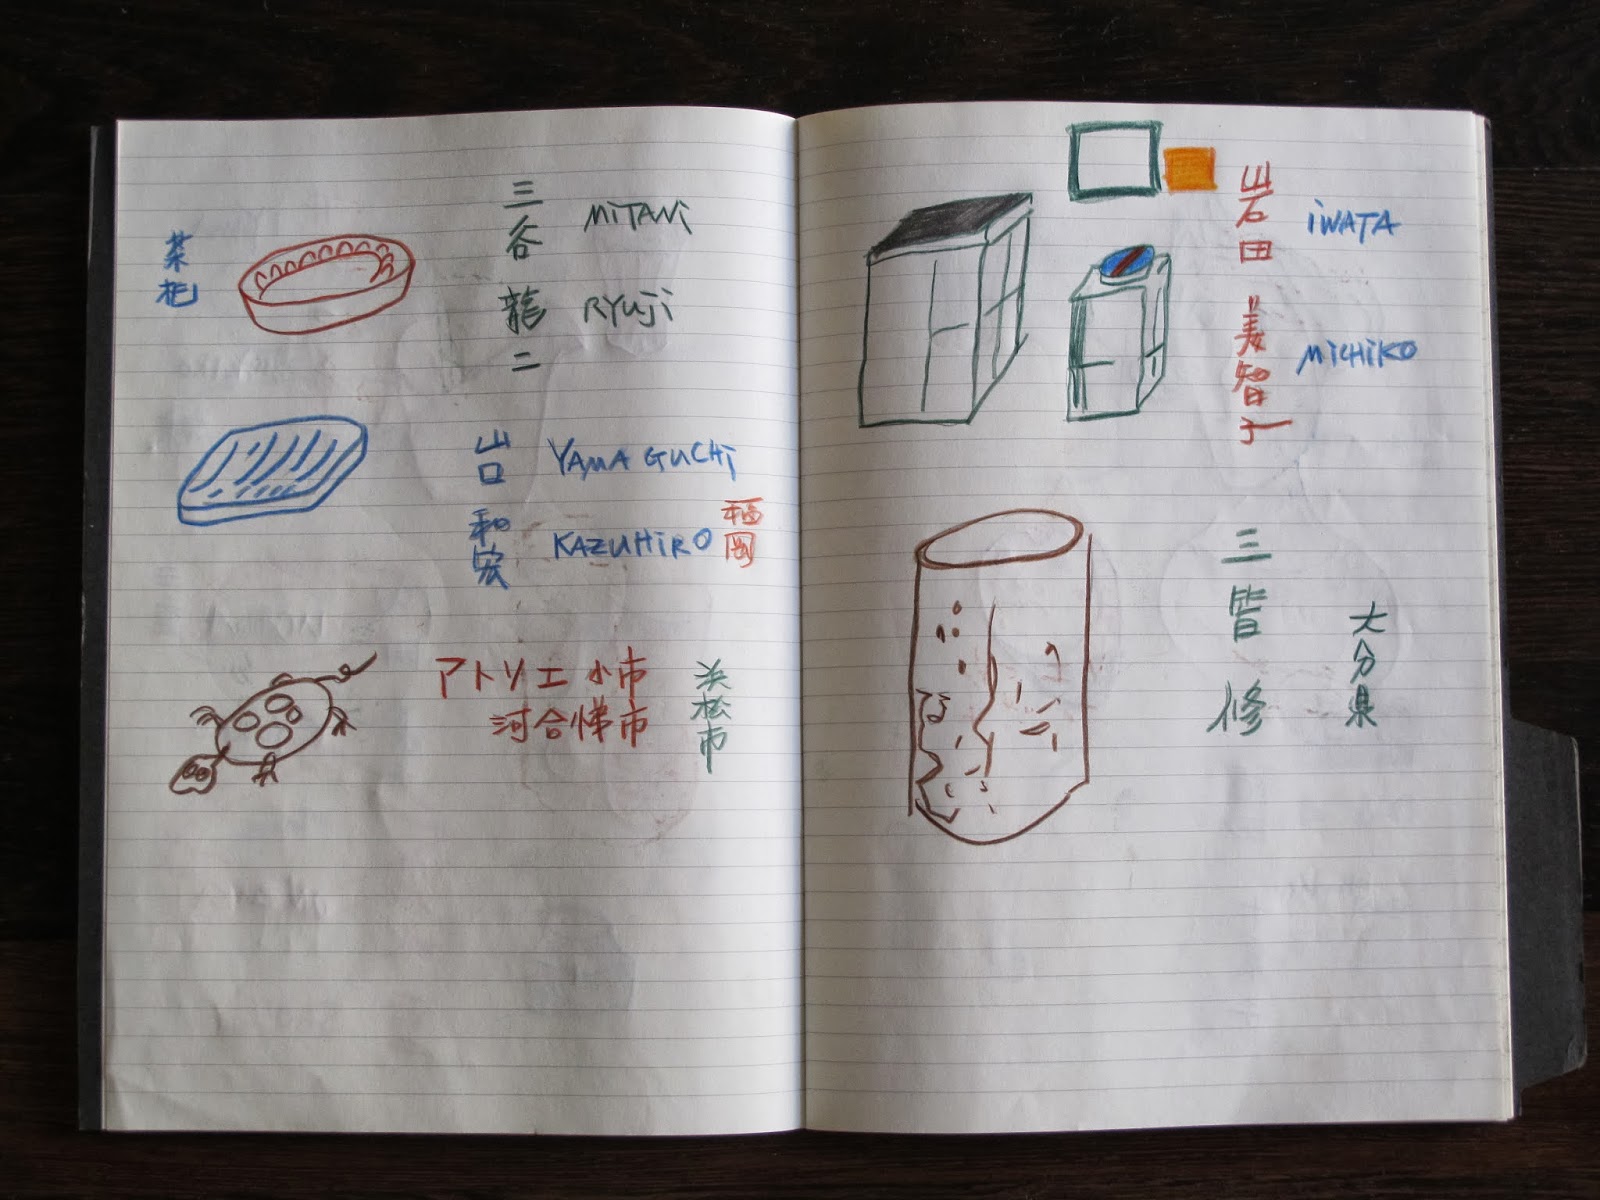 三谷 龍二
MiTANi
RYUJi
山口 和宏
YAMAGUCHi
KAZUHiRO
福岡
アトリエ 小市
河合悌市
浜松市
岩田 美智子
iWATA
MiCHiKO
三皆 修
大分県